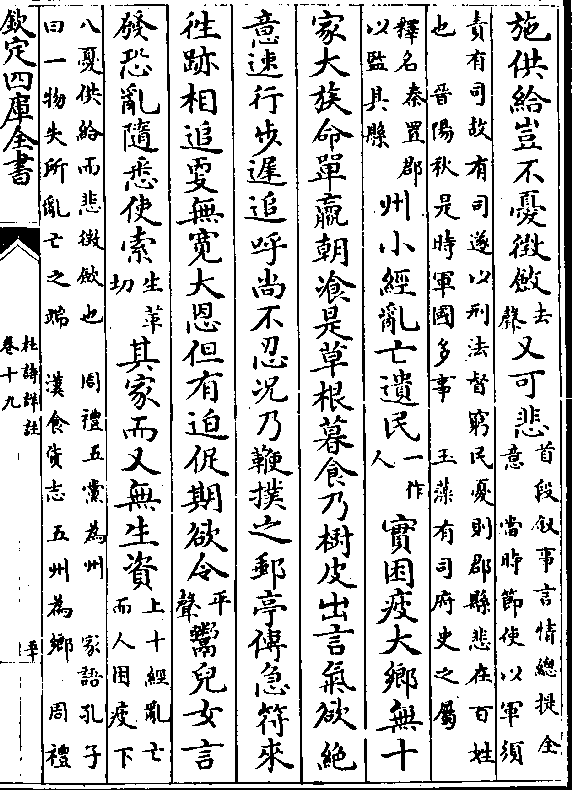 施供給豈不憂徵斂去聲又可悲首段叙事言情總提全意 當時節使以軍須
責有司故有司遂以刑法督窮民憂則郡縣悲在百姓
也 晉陽秋是時軍國多事 玉藻有司府史之屬
釋名秦置郡以監其縣州小經亂亡遺民一作人實困疲大鄉無十
家大族命單羸朝飡是草根暮食乃樹皮出言氣欲絶
意速行步遲追呼尚不忍況乃鞭撲之郵亭傳急符來
徃跡相追更無寛大恩但有迫促期欲令平聲鬻兒女言
發恐亂隨悉使索生革切其家而又無生資上十經亂亡而人困疲下
八憂供給而悲徵斂也 周禮五黨為州 家語孔子
曰一物失所亂亡之端 漢食貨志五州為鄉 周禮
欽定四庫全書
杜詩詳註
卷十九